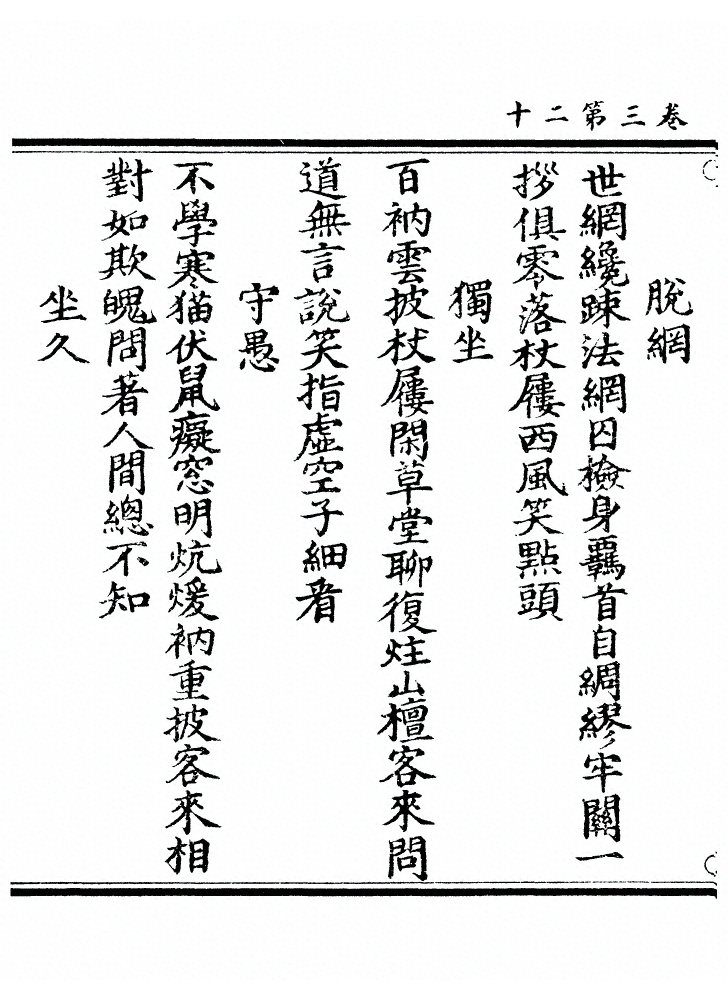 卷三第二十
脫網
世網纔踈法網囚檢身羈首自綢繆牢關一
拶俱零落杖屨西風笑點頭
獨坐
百衲雲披杖屨閑草堂聊復炷山檀客來問
道無言說笑指虛空子細看
守愚
不學寒猫伏鼠癡窓明炕煖衲重披客來相
對如欺愧問著人間總不知
坐久